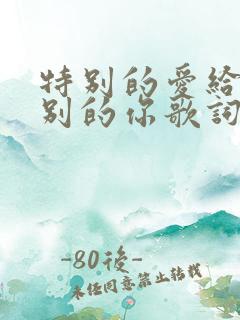 特别的爱给
别的你歌詞
-80後-
未经同意禁止转载